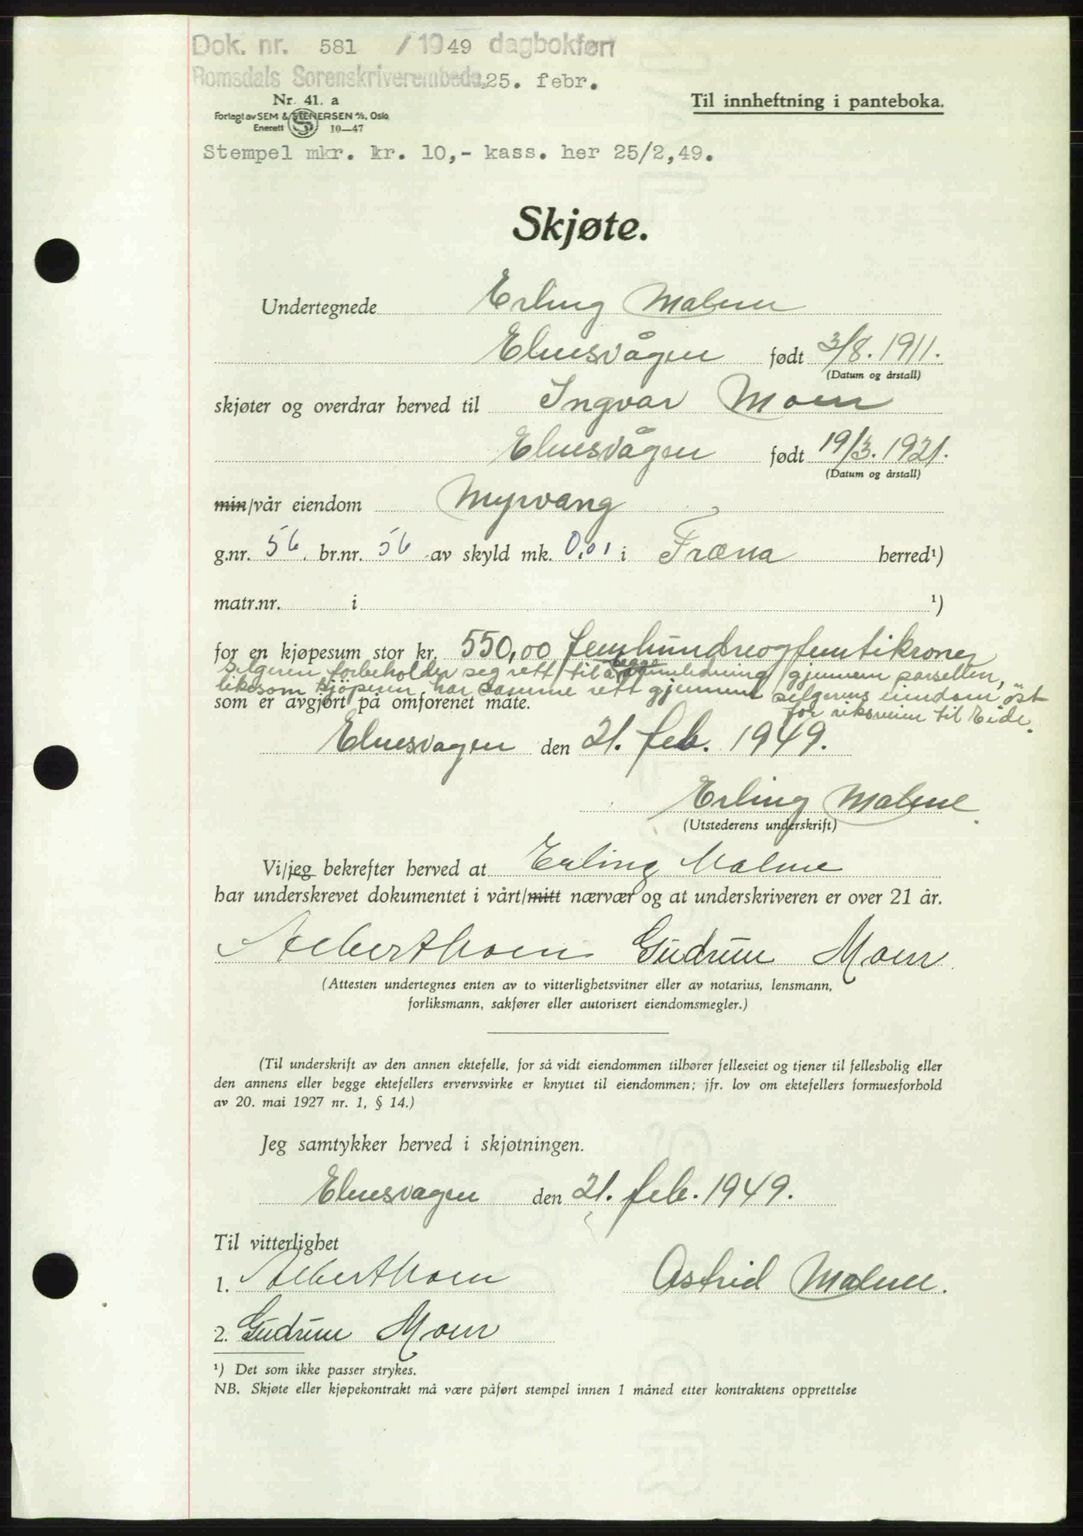 Dok. nr. 581 / 1949 dagbokført
Romsdals Sorenskriverembede 25. febr.
Nr. 41. a
Forlagt av SEM & STENERSEN A/S, Oslo
Enerett 10—47
Til innheftning i panteboka.
Stempel mkr. kr. 10,- kass. her 25/2,49.
Skjøte.
Undertegnede Erling Malme
Elnesvågen født 3/8. 1911.
(Datum og årstall)
skjøter og overdrar herved til Ingvar Moen
Elnesvågen født 19/3. 1921.
(Datum og årstall)
min/vår eiendom Myrvang
g.nr. 56. br.nr. 56 av skyld mk. 0,01 i Fræna herred¹)
matr.nr. i ¹)
for en kjøpesum stor kr. 550,00 femhundreogfemtikroner
selgeren forbeholder seg rett til å legge ledning gjennem parsellen,
likesom kjöperen har samme rett gjennem selgerens eiendom öst
for riksveien til Eide.
som er avgjort på omforenet måte.
Elnesvagen den 21. feb. 1949.
Erling Malme
(Utstederens underskrift)
Vi/jeg bekrefter herved at Erling Malme
har underskrevet dokumentet i vårt/mitt nærvær og at underskriveren er over 21 år.
Albert Moen Gudrun Moen
(Attesten undertegnes enten av to vitterlighetsvitner eller av notarius, lensmann,
forliksmann, sakfører eller autorisert eiendomsmegler.)
(Til underskrift av den annen ektefelle, for så vidt eiendommen tilhører felleseiet og tjener til fellesbolig eller
den annens eller begge ektefellers ervervsvirke er knyttet til eiendommen; jfr. lov om ektefellers formuesforhold
av 20. mai 1927 nr. 1, § 14.)
Jeg samtykker herved i skjøtningen.
Elnesvagen den 21. feb. 1949.
Til vitterlighet
1. Albert Moen Astrid Malme.
2. Gudrun Moen
¹) Det som ikke passer strykes.
NB. Skjøte eller kjøpekontrakt må være påført stempel innen 1 måned etter kontraktens opprettelse